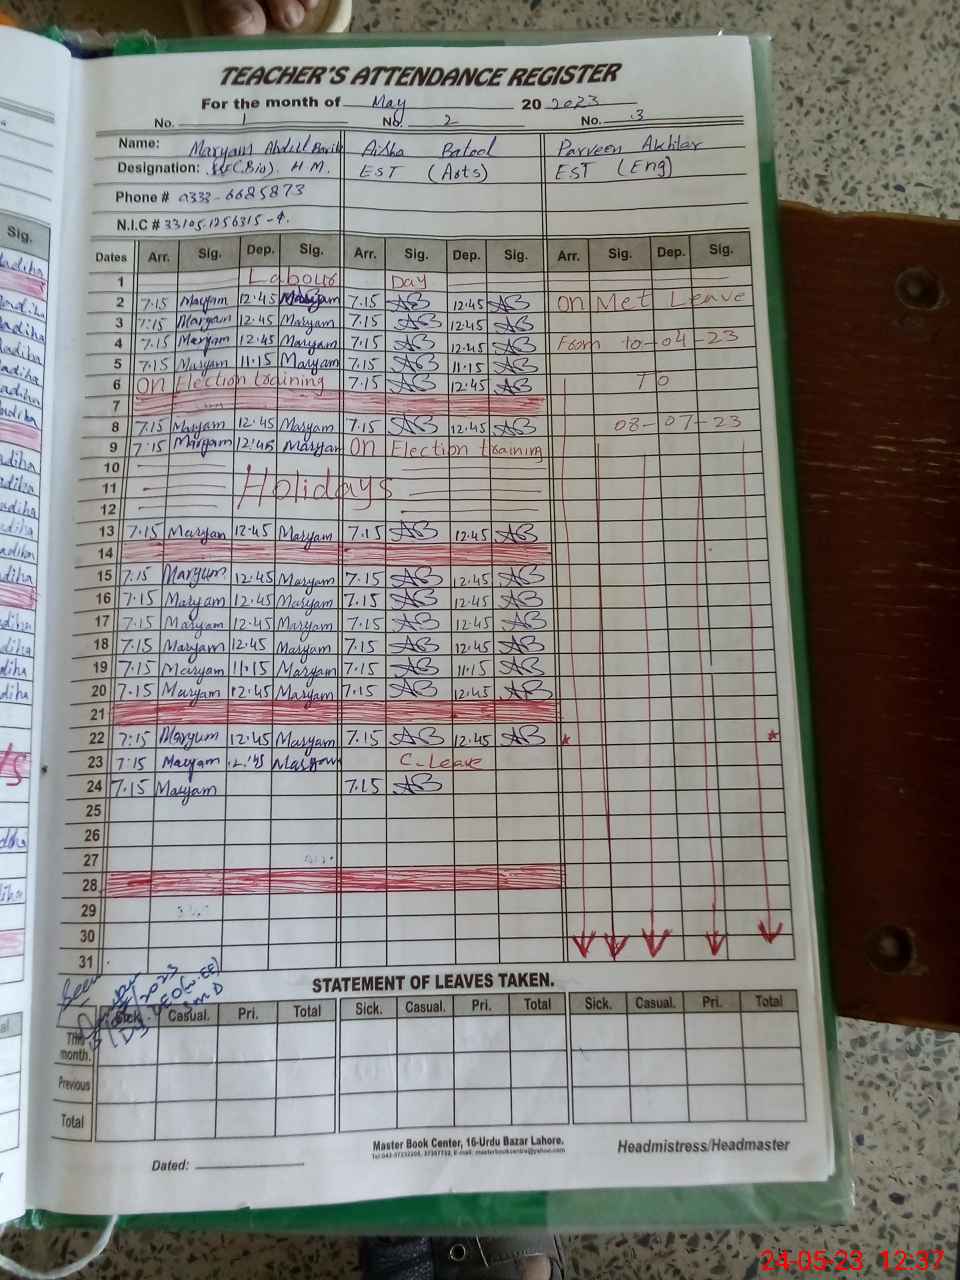 TEACHER'S ATTENDANCE REGISTER
For the month of May 20 2023
No. 1 No. 2 No. 3
Name: Maryam Abdul Aisha Batool Parveen Akhtar
Designation: H M. EST (Arts) EST (Eng)
Phone # 0333-6685873
N.I.C # 33105.1256315-4.
Dates Arr. Sig. Dep. Sig. Arr. Sig. Dep. Sig. Arr. Sig. Dep. Sig.
1 Labour Day
2 7.15 Maryam 12.45 Maryam 7.15 AB 12.45 AB On Met Leave
3 7:15 Maryam 12.45 Maryam 7.15 AB 12.45 AB
4 7.15 Maryam 12.45 Maryam 7.15 AB 12.45 AB From 10-04-23
5 7.15 Maryam 11.15 Maryam 7.15 AB 11.15 AB
6 On Election training 7.15 AB 12.45 AB To
7
8 7.15 Maryam 12.45 Maryam 7.15 AB 12.45 AB 08-07-23
9 7:15 Maryam 12:45 Maryam On Election training
10
11 Holidays
12
13 7.15 Maryam 12.45 Maryam 7.15 AB 12.45 AB
14
15 7:15 Maryum 12.45 Maryam 7.15 AB 12.45 AB
16 7.15 Maryam 12.45 Maryam 7.15 AB 12.45 AB
17 7.15 Maryam 12.45 Maryam 7.15 AB 12.45 AB
18 7.15 Maryam 12.45 Maryam 7.15 AB 12.45 AB
19 7.15 Maryam 11.15 Maryam 7.15 AB 11.15 AB
20 7.15 Maryam 12.45 Maryam 7.15 AB 12.45 AB
21
22 7:15 Maryum 12.45 Maryam 7.15 AB 12.45 AB
23 7:15 Maryam Maryam C-Leave
24 7.15 Maryam 7.15 AB
25
26
27
28
29
30
31
Seen
STATEMENT OF LEAVES TAKEN.
Sick. Casual. Pri. Total Sick. Casual. Pri. Total Sick. Casual. Pri. Total
This
month.
Previous
Total
Master Book Center, 16-Urdu Bazar Lahore.
Headmistress/Headmaster
Dated:
24-05-23 12:37